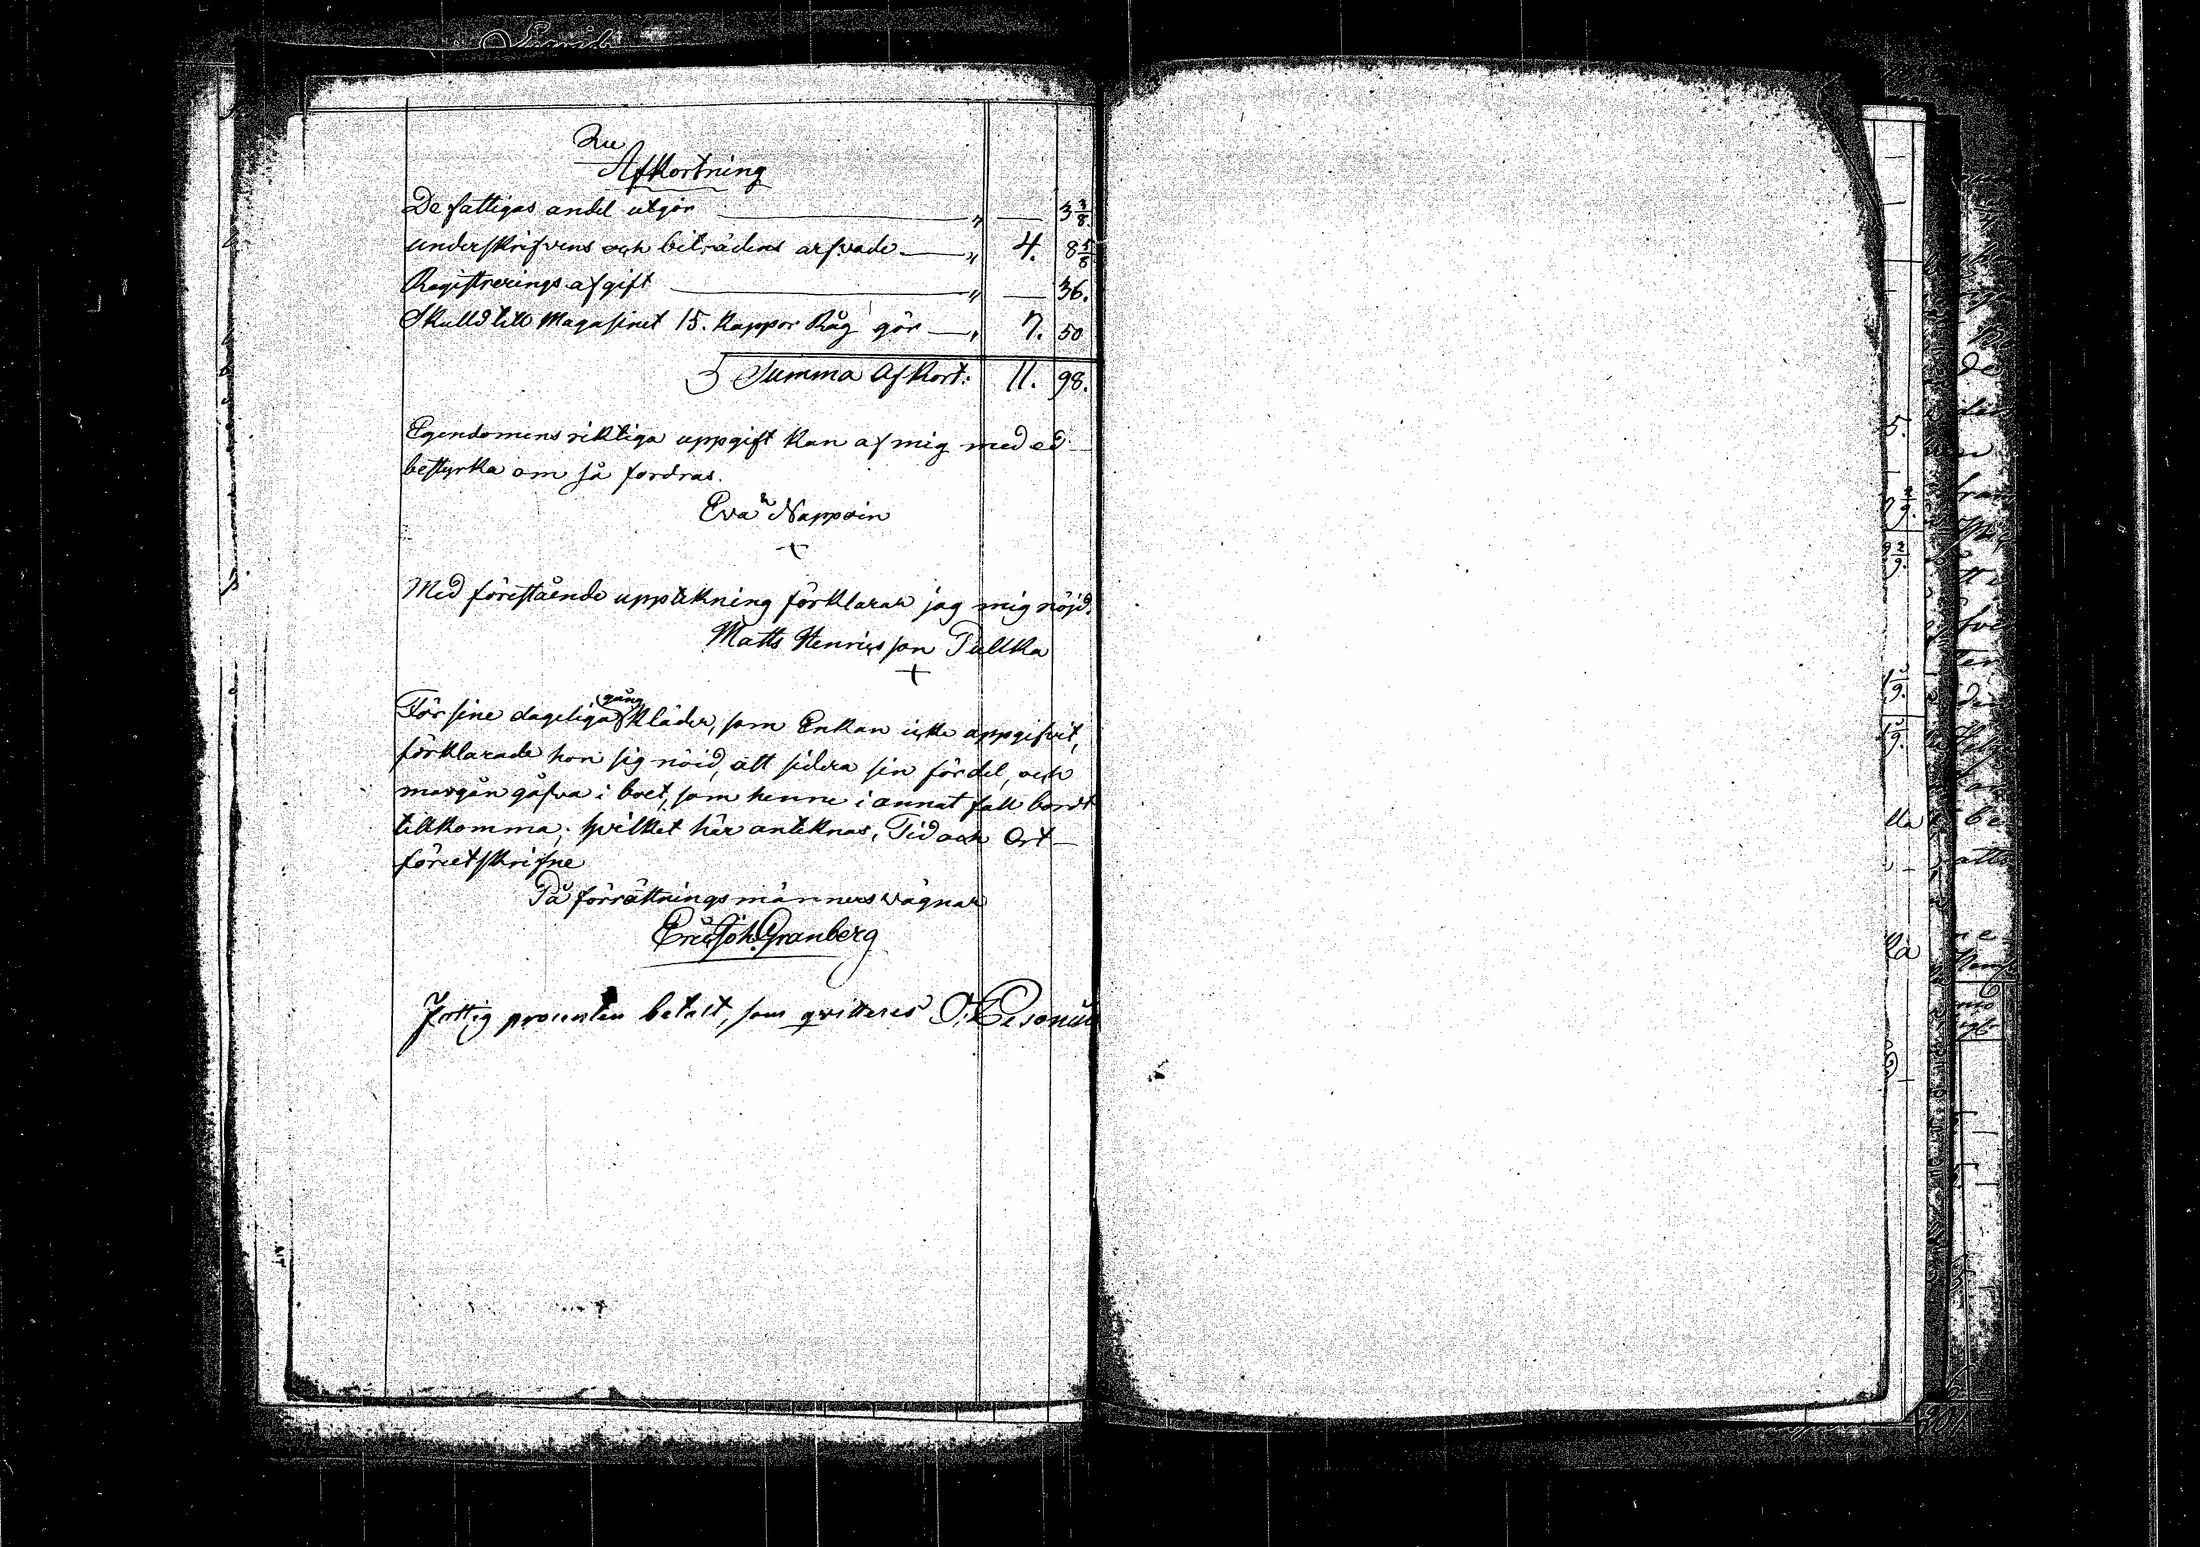 Afkortning
De fattigas andel utgör " — 3 3/8
underskrifvens och biträdens arfvode " 4. 8 5/8
Registrerings afgift " — 36.
Skulld till Magasinet 15. kappor Råg gör " 7. 50
Summa Afkort: 11. 98.
Egendomens riktiga uppgift kan af mig med ed
bestyrka om så fordras.
Eva Nappoin
+
Med förestående uppteckning förklarar jag mig nöjd.
Matts Henricsson Pullka
+
gång
För sine dageliga kläder, som Enkan icke uppgifvit,
förklarade hon sig nöid, att sidera sin fördel, och
morgån gåfva i boet, som henne i annat fall bordt
tillkomma; hvilket här anteknas, Tid och Ort
föreetskrifne
På förrättningsmänners vägnar
Eric Joh. Granberg
Fattig procenten betalt, som qvitteras